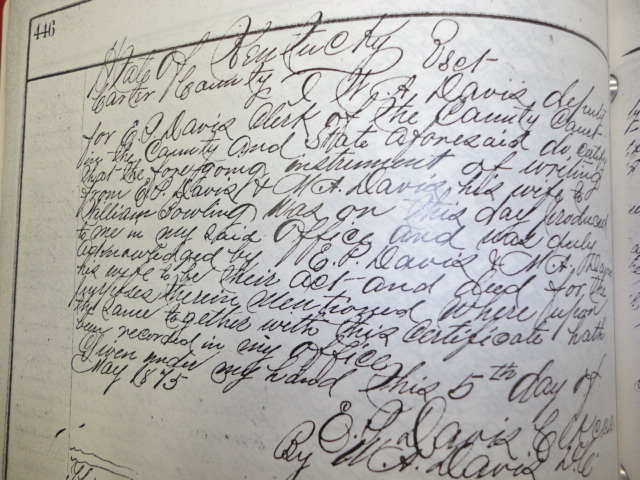 446
State of Kentucky Sct
Carter County I W. A. Davis deputy
for E. P. Davis Clerk of the County Court
in the County and State aforesaid do certify
that the foregoing instrument of writing
from E. P. Davis & M. A. Davis his wife to
William Bowling was on this day produced
to me in my said Office and was duly
acknowledged by E. P. Davis & M. A. Davis
his wife to be their act and deed for the
purposes therein mentioned where upon
the same together with this certificate hath
been recorded in my office
Given under my hand this 5th day of
May 1875
E. P. Davis
By W. A. Davis D.C.